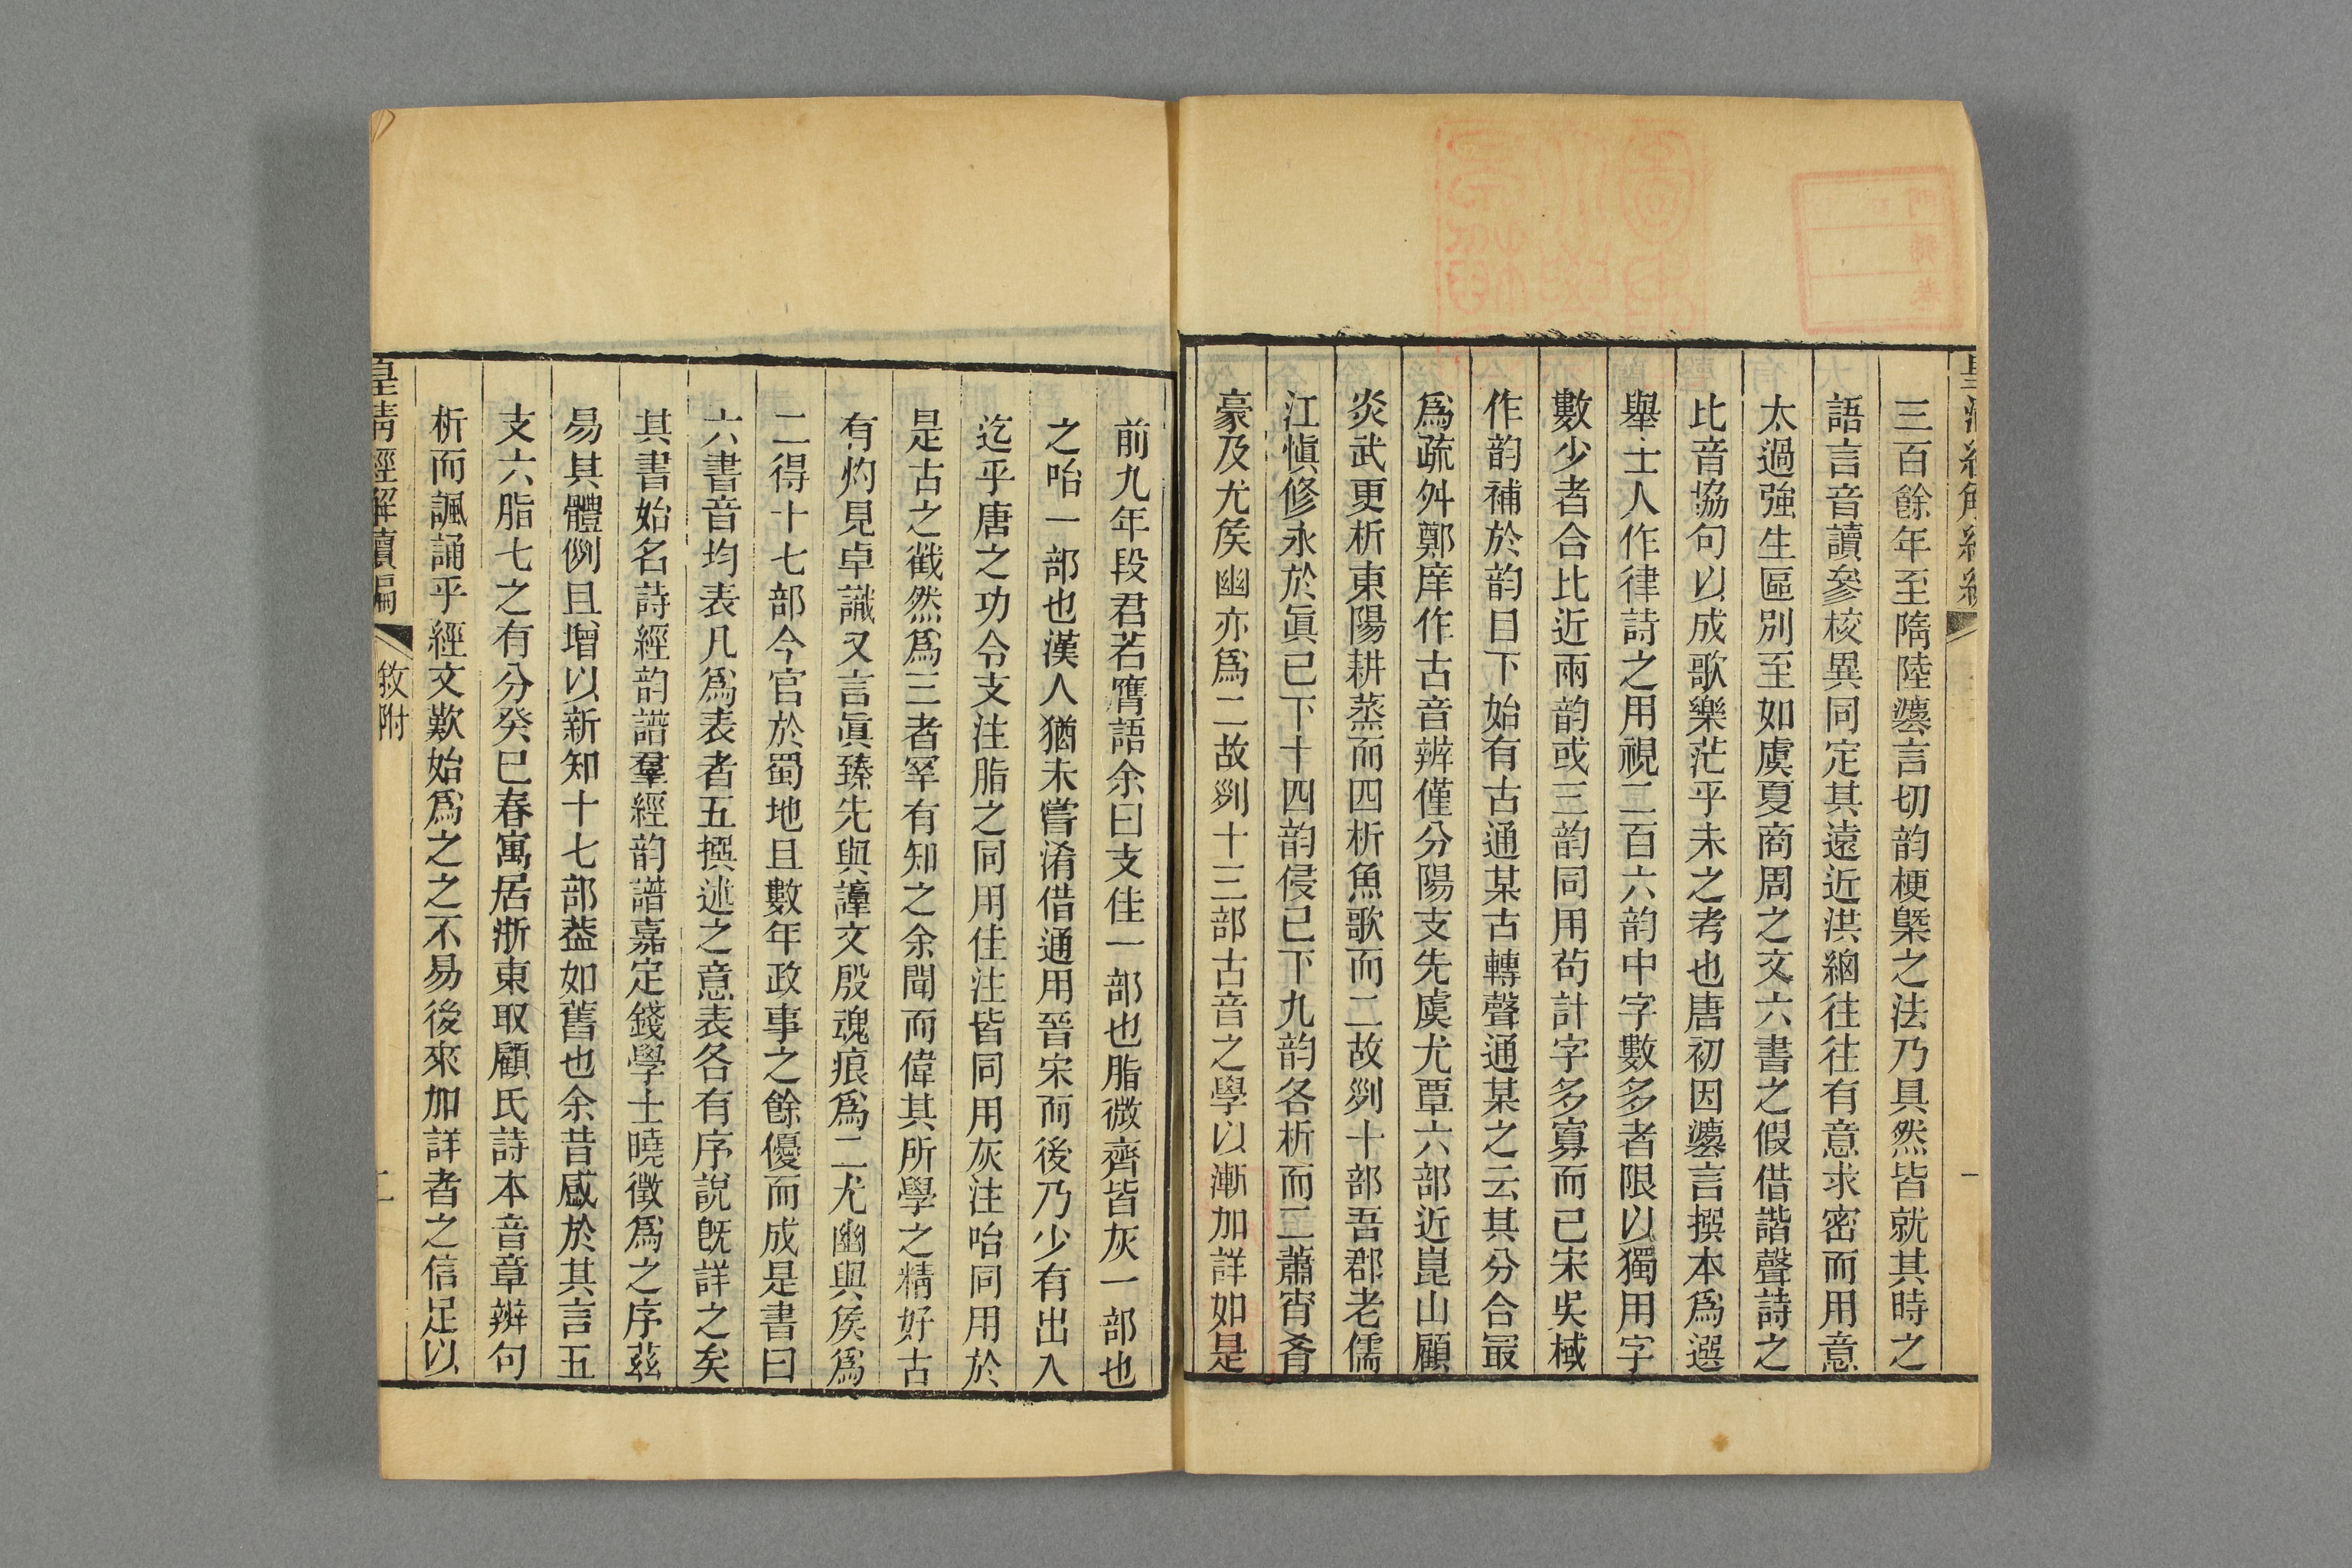 三百餘年至隋陸灋言切韵梗槩之法乃具然皆就其時之
語言音讀參校異同定其遠近洪細往往有意求密而用意
太過強生區別至如虞夏商周之文六書之假借諧聲詩之
比音協句以成歌樂茫乎未之考也唐初因灋言撰本爲選
舉士人作律詩之用視二百六韵中字數多者限以獨用字
數少者合比近兩韵或三韵同用苟計字多寡而已宋吳棫
作韵補於韵目下始有古通某古轉聲通某之云其分合最
爲疏舛鄭庠作古音辨僅分陽支先虞尤覃六部近崑山顧
炎武更析東陽耕蒸而四析魚歌而二故列十部吾郡老儒
江愼修永於眞已下十四韵侵已下九韵各析而二蕭宵肴
豪及尤矦幽亦爲二故列十三部古音之學以漸加詳如是
前九年段君若膺語余曰支佳一部也脂微齊皆灰一部也
之咍一部也漢人猶未嘗淆借通用晉宋而後乃少有出入
迄乎唐之功令支注脂之同用佳注皆同用灰注咍同用於
是古之截然爲三者罕有知之余聞而偉其所學之精好古
有灼見卓識又言眞臻先與諄文殷魂痕爲二尤幽與矦爲
二得十七部今官於蜀地且數年政事之餘優而成是書曰
六書音均表凡爲表者五撰述之意表各有序說旣詳之矣
其書始名詩經韵譜羣經韵譜嘉定錢學士曉徵爲之序茲
易其體例且增以新知十七部蓋如舊也余昔感於其言五
支六脂七之有分癸巳春寓居浙東取顧氏詩本音章辨句
析而諷誦乎經文歎始爲之之不易後來加詳者之信足以
皇淸經解續編
敘附
二